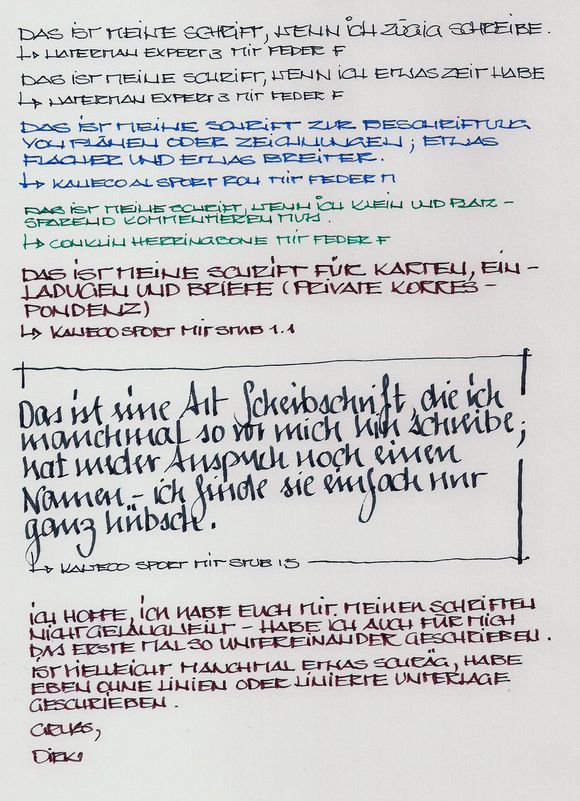 DAS iST MEiNE SCHRiFT, WENN iCH ZÜGiG SCHREiBE.
↳ WATERMAN EXPERT 3 MiT FEDER F
DAS iST MEiNE SCHRiFT, WENN iCH ETWAS ZEiT HABE
↳ WATERMAN EXPERT 3 MiT FEDER F
DAS iST MEiNE SCHRiFT ZUR BESCHRiFTUNG
VON PLÄNEN ODER ZEiCHNUNGEN; ETWAS
FLACHER UND ETWAS BREiTER.
↳ KAWECO AL SPORT ROH MiT FEDER M
DAS iST MEiNE SCHRiFT, WENN iCH KLEiN UND PLATZ-
SPAREND KOMMENTiEREN MUß.
↳ CONKLiN HERRiNGBONE MiT FEDER F
DAS iST MEiNE SCHRiFT FÜR KARTEN, EiN-
LADUGEN UND BRiEFE (PRiVATE KORRES-
PONDENZ)
↳ KAWECO SPORT MiT STUB 1.1
Das ist eine Art Scheibschrift, die ich
manchmal so vor mich hin schreibe;
hat weder Anspruch noch einen
Namen - ich finde sie einfach nur
ganz hübsch.
↳ KAWECO SPORT MiT STUB 1.5
iCH HOFFE, iCH HABE EUCH MiT MEiNEN SCHRiFTEN
NiCHT GELANGWEiLT - HABE iCH AUCH FÜR MiCH
DAS ERSTE MAL SO UNTEREiNANDER GESCHRiEBEN.
iST ViELLEiCHT MANCHMAL ETWAS SCHRÄG, HABE
EBEN OHNE LiNiEN ODER LiNiERTE UNTERLAGE
GESCHRiEBEN.
GRUSS,
DiRK